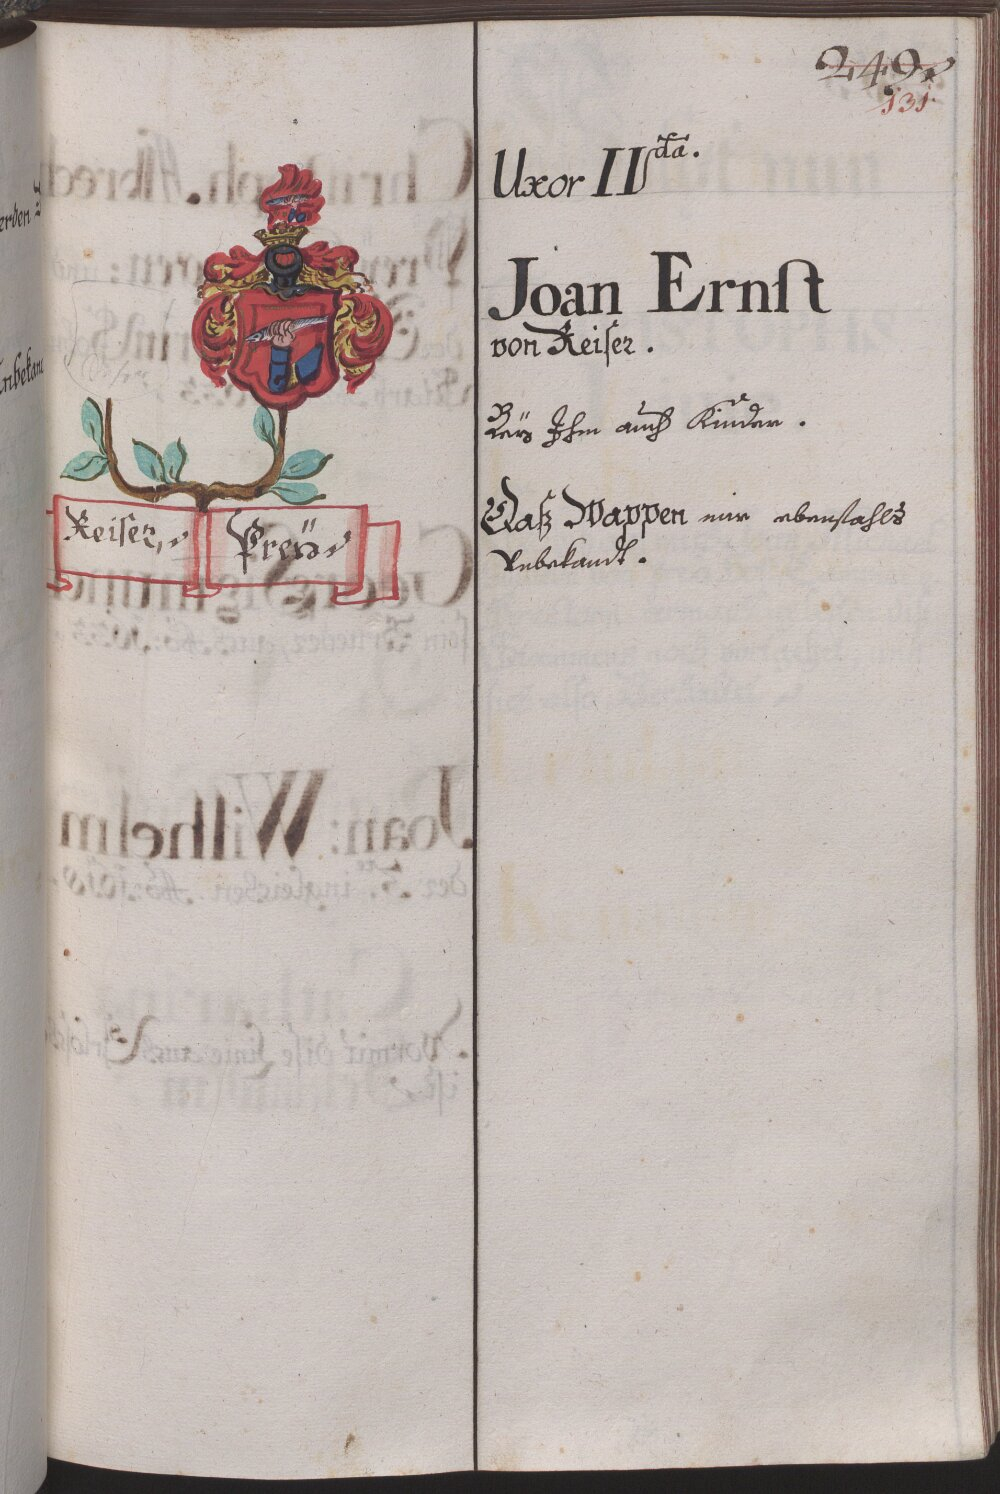 249.
131.
Uxor II da.
Joan Ernſt
von Keiſer.
Bey Ihm auch Kinder.
Daß Wappen mir ebenfahls
Unbekandt.
Keiſer,
Preÿ